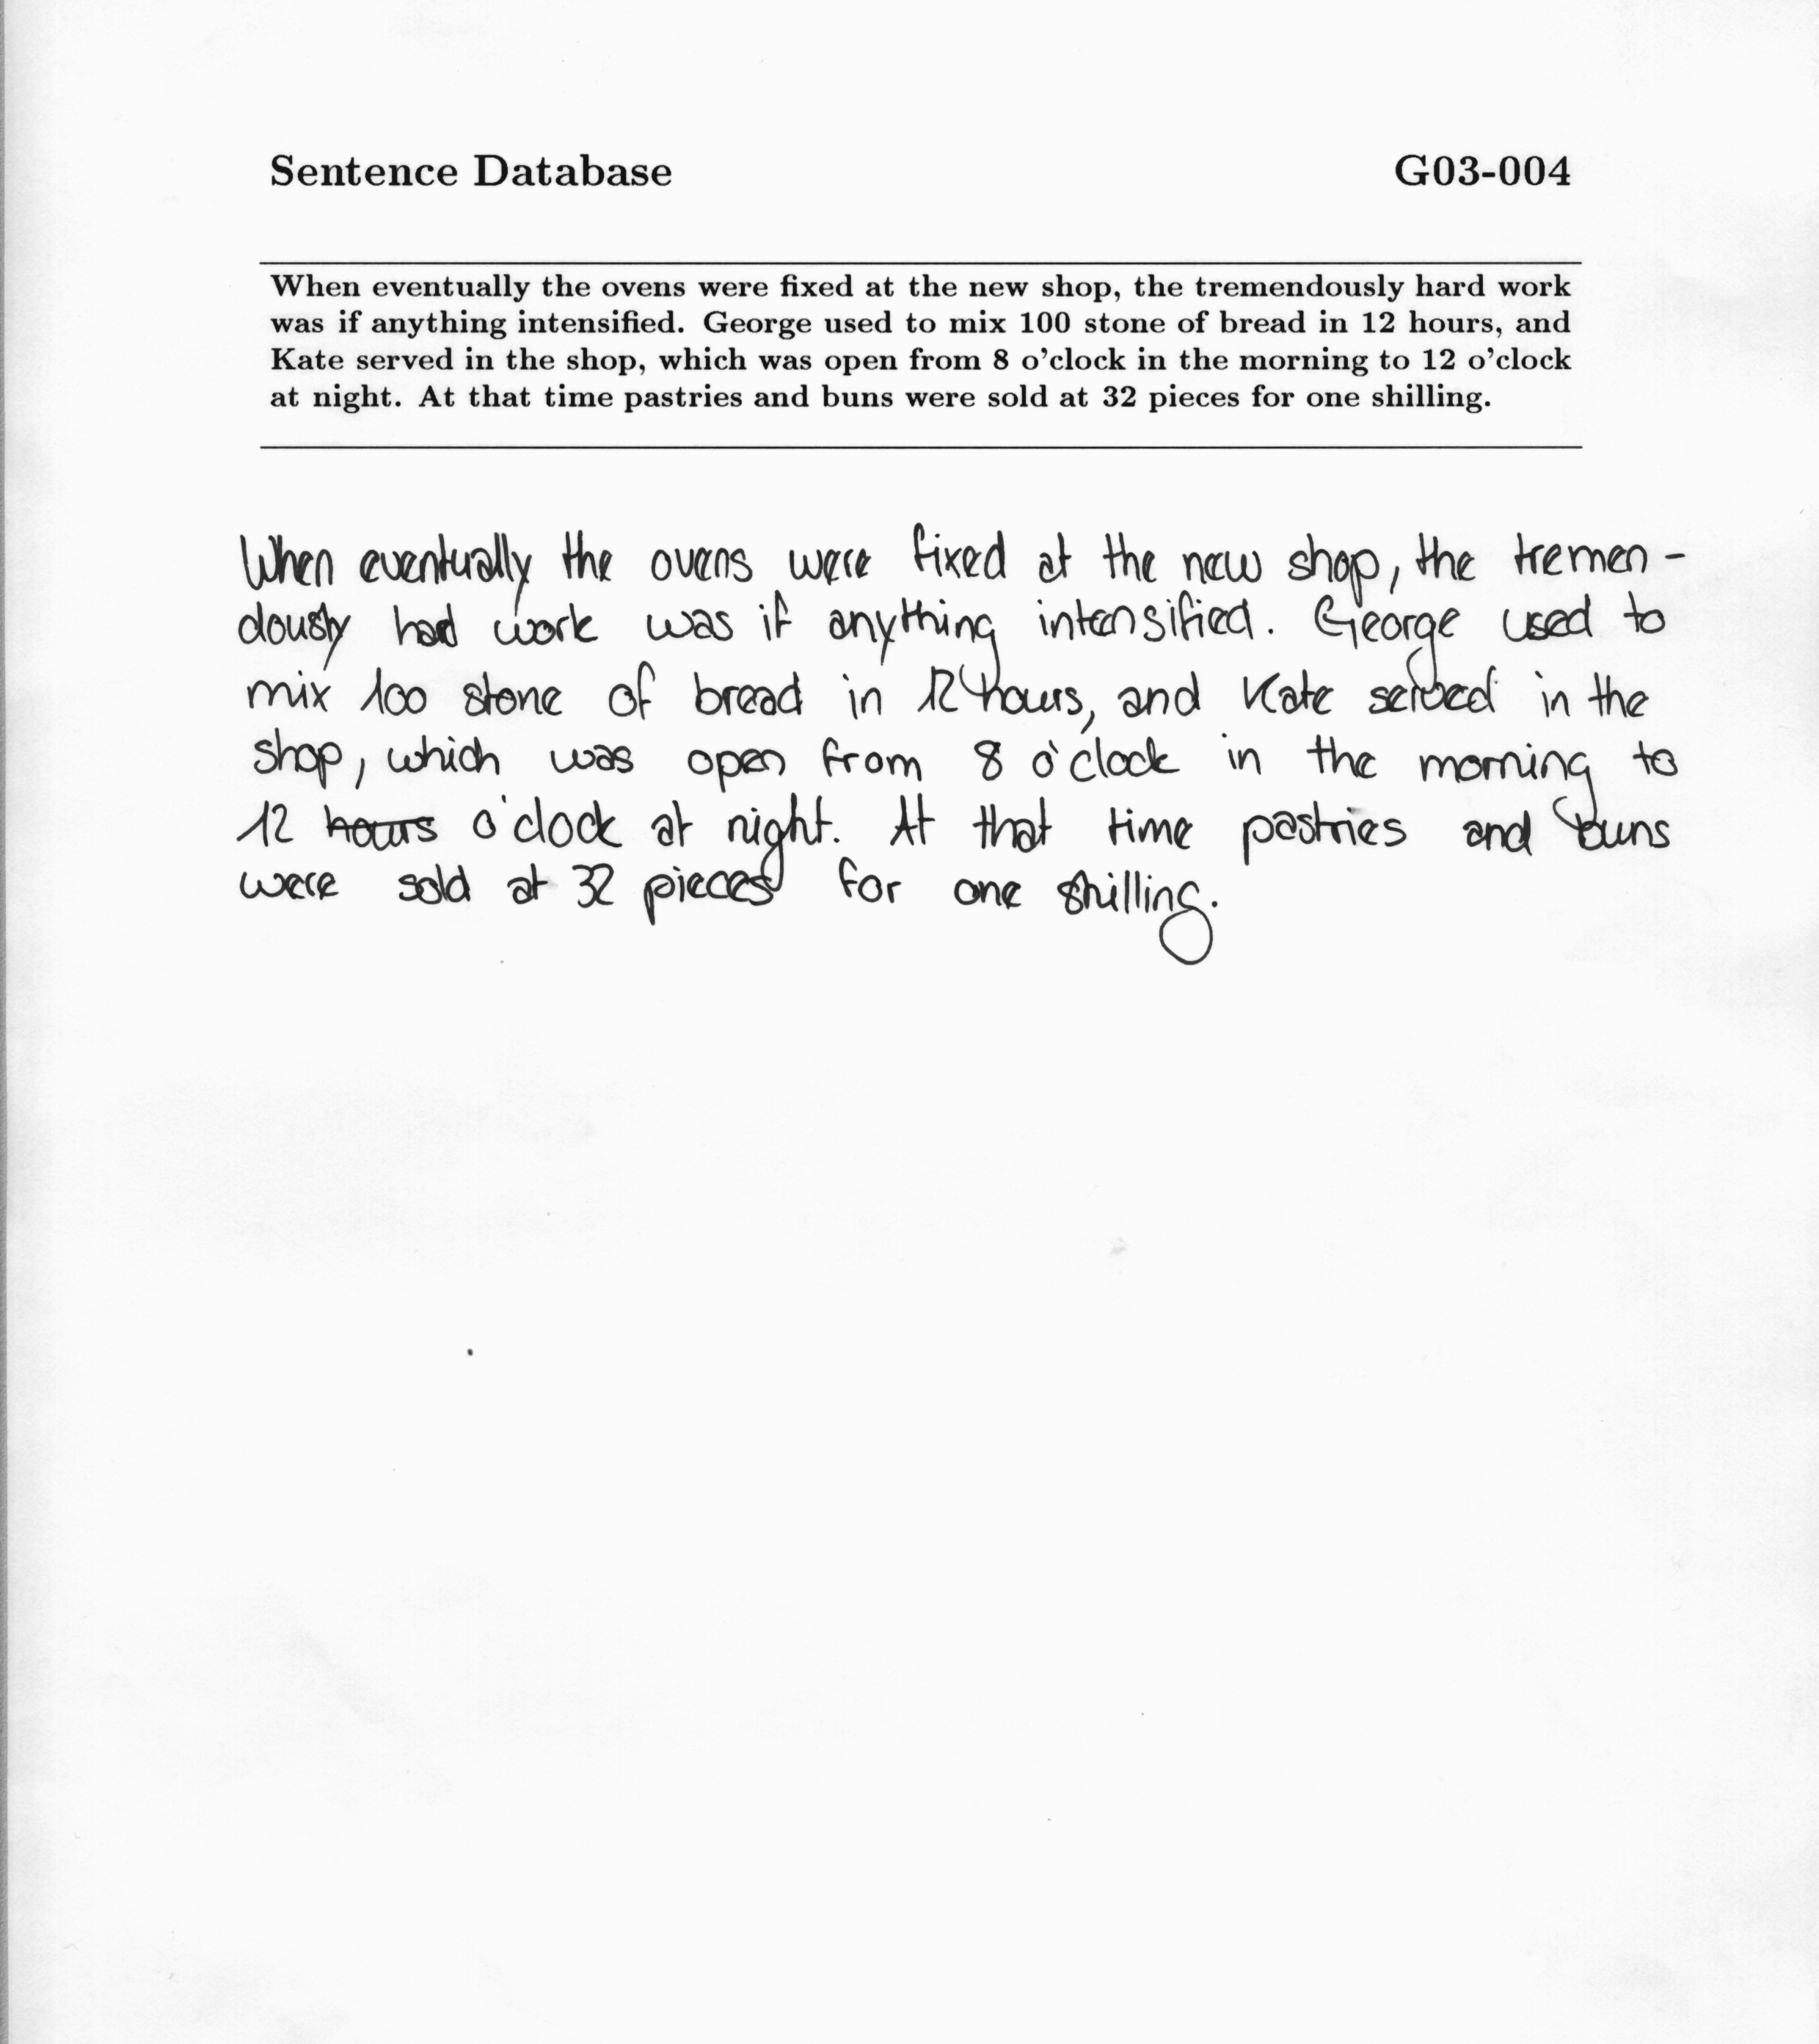 Sentence Database G03-004
When eventually the ovens were fixed at the new shop, the tremendously hard work
was if anything intensified. George used to mix 100 stone of bread in 12 hours, and
Kate served in the shop, which was open from 8 o'clock in the morning to 12 o'clock
at night. At that time pastries and buns were sold at 32 pieces for one shilling.
When eventually the ovens were fixed at the new shop, the tremen-
dously had work was if anything intensified. George used to
mix 100 stone of bread in 12 hours, and Kate served in the
shop, which was open from 8 o'clock in the morning to
12 hours o'clock at night. At that time pastries and buns
were sold at 32 pieces for one shilling.